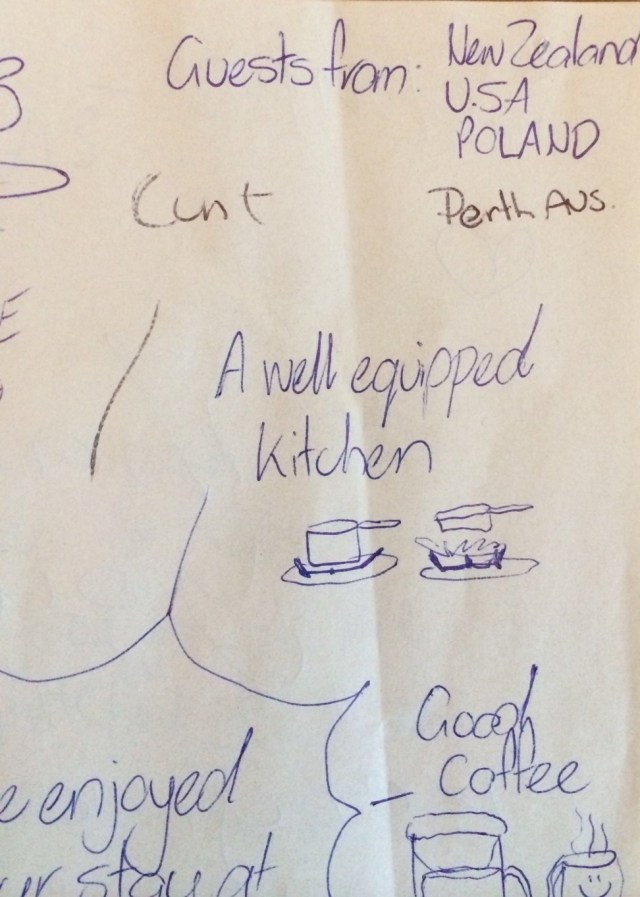 Guests from: New Zealand
U.S.A
POLAND
Cunt
Perth AUS.
A well equipped
kitchen
Good
Coffee
enjoyed
stay at